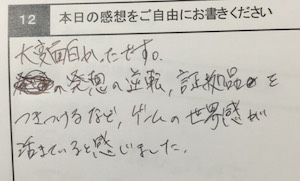 12 本日の感想をご自由にお書きください
大変面白かったです。
の発想の逆転、証拠品を
つきつけるなど、ゲームの世界感が
活きていると感じました。